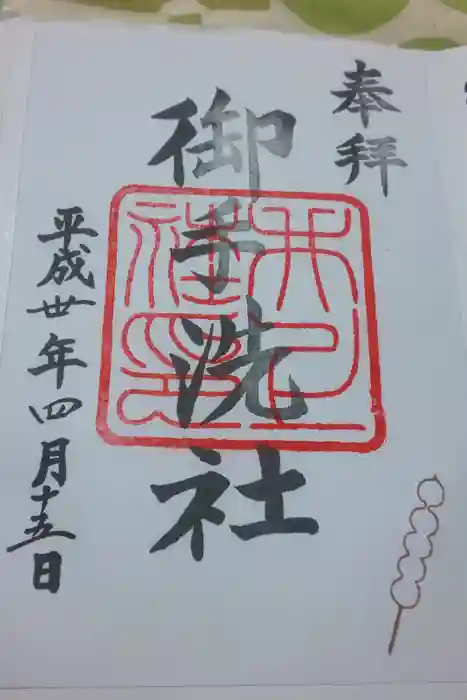 奉拝
御手洗社
平成卅年四月十五日